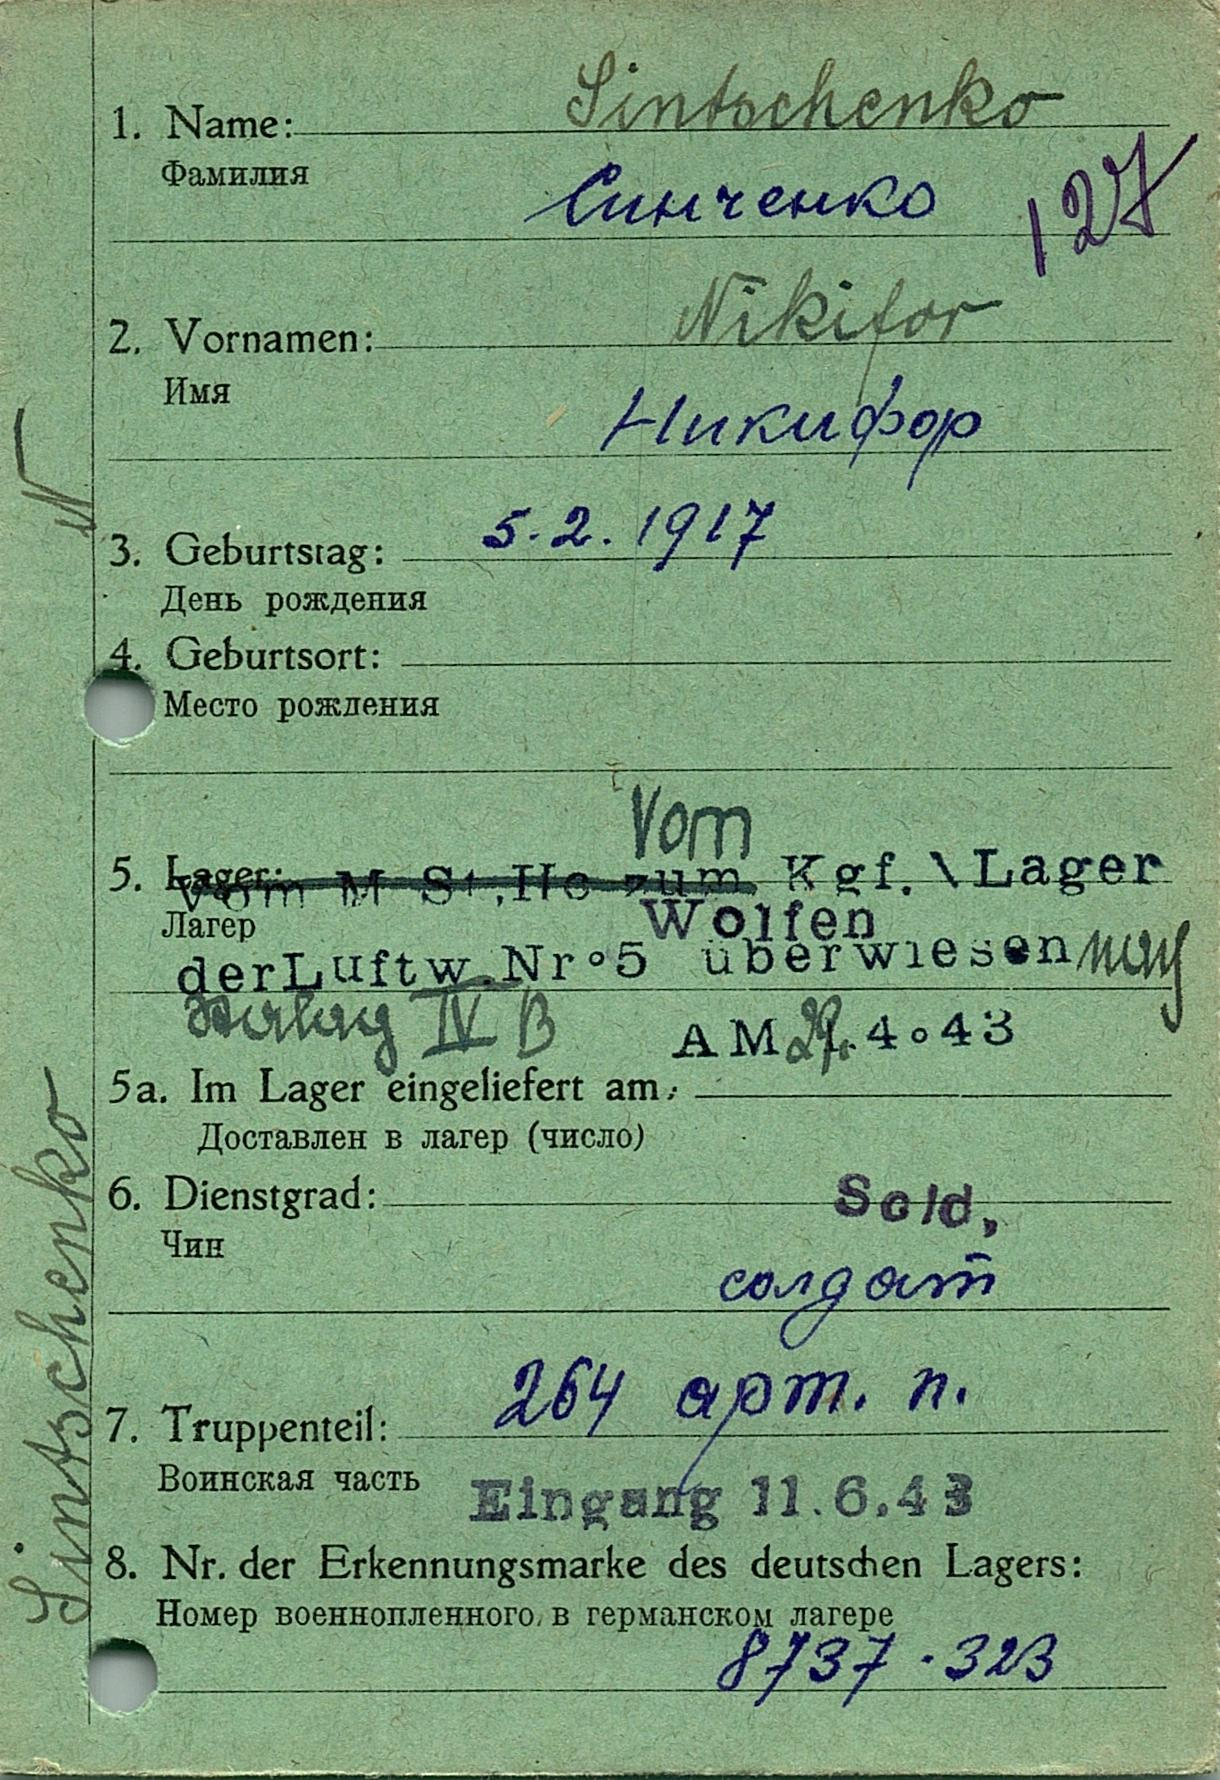 1. Name: Sintschenko
Фамилия
Синченко
127
2. Vornamen: Nikifor
Имя
Никифор
3. Geburtstag: 5.2.1917
День рождения
4. Geburtsort:
Место рождения
Vom
5. Lager: Vom M St. He zum Kgf. \ Lager
Лагер
Wolfen
der Luftw. Nr°5 überwiesen nach
Stalag IV B AM 29. 4°43
5a. Im Lager eingeliefert am:
Доставлен в лагер (число)
6. Dienstgrad: Sold,
Чин
солдат
7. Truppenteil: 264 арт. п.
Воинская часть
Eingang 11.6.43
8. Nr. der Erkennungsmarke des deutschen Lagers:
Номер военнопленного в германском лагере
8737 · 323
Sintschenko N